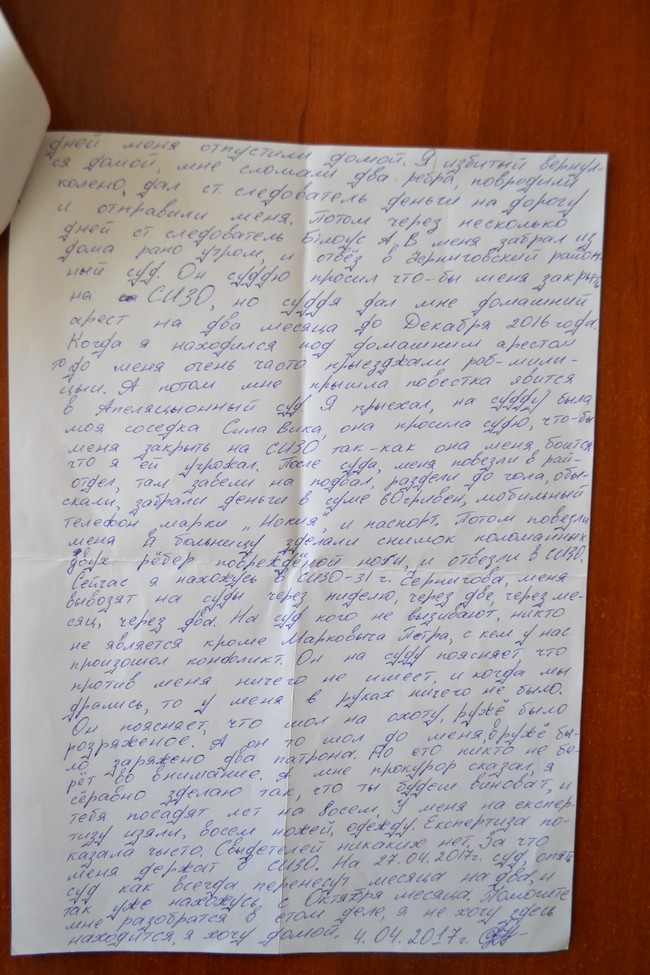 дней меня отпустили домой. Я избитый вернул-
ся домой, мне сломали два ребра, повредили
колено, дал ст. следователь деньги на дорогу
и отправили меня. Потом через несколько
дней ст. следователь Білоус А.В меня забрал из
дома рано утром, и отвёз в Черниговский район-
ный суд. Он суддю просил что-бы меня закрыть
на СИЗО, но суддя дал мне домашний
арест на два месяца до Декабря 2016 года.
Когда я находился под домашним арестом
то до меня очень часто прыезджали роб-мили-
цыи. А потом мне прышла повестка явится
в Апеляцыонный суд. Я прыехал, на судду была
моя соседка Сила Вика, она просила судю, что-бы
меня закрыть на СИЗО так-как она меня боится
что я ей угрожал. После суда, меня повезли в рай-
отдел, там завели на подвал, раздели до гола, обы-
скали, забрали деньги в суме 60 гривен, мобильный
телефон марки „Нокия, и паспорт. Потом повезли
меня в больницу зделали снимок поломанных
двух рёбер повреждёной ноги, и отвезли в СИЗО.
Сейчас я нахожусь в СИЗО-31 г. Чернигова, меня
вывозят на суды через ниделю, через две, через ме-
сяц, через два. На суд кочо не вызивают, никто
не является кроме Марковыча Петра, с кем у нас
произошол конфликт. Он на суду поясняет, что
против меня ничего не имеет, и когда мы
дрались, то у меня в руках ничего не было.
Он поясняет, что шол на охоту, ружё было
розряженое. А он то шол до меня, в ружё бы-
ло заряжено два патрона. Но ето никто не бе-
рёт во внимание. А мне прокурор сказал, я
сёравно зделаю так, что ты будеш виноват, и
тебя посадят лет на восем. У меня на експер-
тизу изяли, восем ножей, одежду. Експертиза по-
казала чысто. Свыдетелей никаких нет. За что
меня держат в СИЗО. На 27.04.2017г. суд, опять
суд как всегда перенесут месяца на два, и
так уже нахожусь, с Октября месяца. Помогите
мне разобратся в етом деле, я не хочу здесь
находится, я хочу домой. 4.04.2017г.